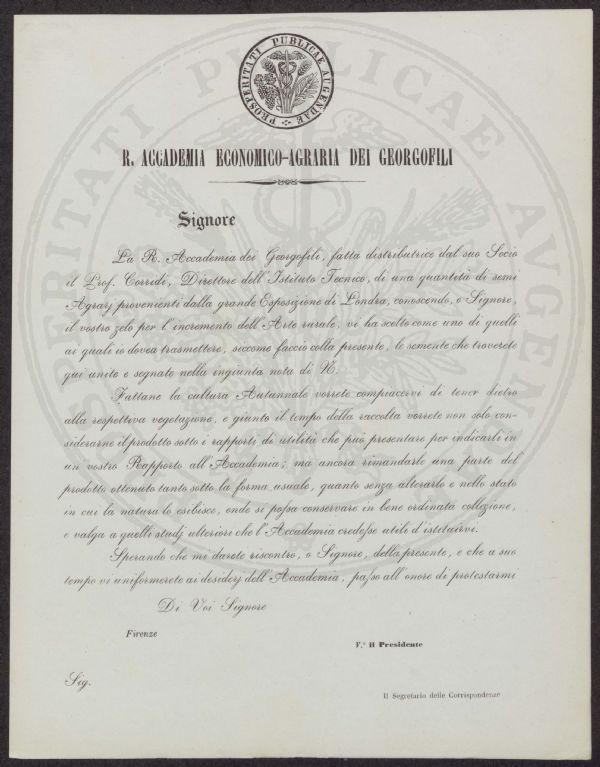 PROSPERITATI PUBLICAE AUGENDAE
R. ACCADEMIA ECONOMICO-AGRARIA DEI GEORGOFILI
Signore
La R. Accademia dei Georgofili, fatta distributrice dal suo Socio
il Prof. Corridi, Direttore dell'Istituto Tecnico, di una quantità di semi
Agrarj provenienti dalla grande Esposizione di Londra, conoscendo, o Signore,
il vostro zelo per l'incremento dell'Arte rurale, vi ha scelto come uno di quelli
ai quali io dovea trasmettere, siccome faccio colla presente, le semente che troverete
qui unite e segnate nella ingiunta nota di N.
Fattane la cultura Autunnale vorrete compiacervi di tener dietro
alla respettiva vegetazione, e giunto il tempo della raccolta vorrete non solo con-
siderarne il prodotto sotto i rapporti di utilità che può presentare per indicarli in
un vostro Rapporto all'Accademia; ma ancora rimandarle una parte del
prodotto ottenuto tanto sotto la forma usuale, quanto senza alterarlo e nello stato
in cui la natura lo esibisce, onde si possa conservare in bene ordinata collezione,
e valga a quelli studj ulteriori che l'Accademia credesse utili d'istituirvi.
Sperando che mi darete riscontro, o Signore, della presente, e che a suo
tempo vi uniformerete ai desiderj dell'Accademia, passo all'onore di protestarmi
Di Voi Signore
Firenze
V.° Il Presidente
Sig.
Il Segretario delle Corrispondenze